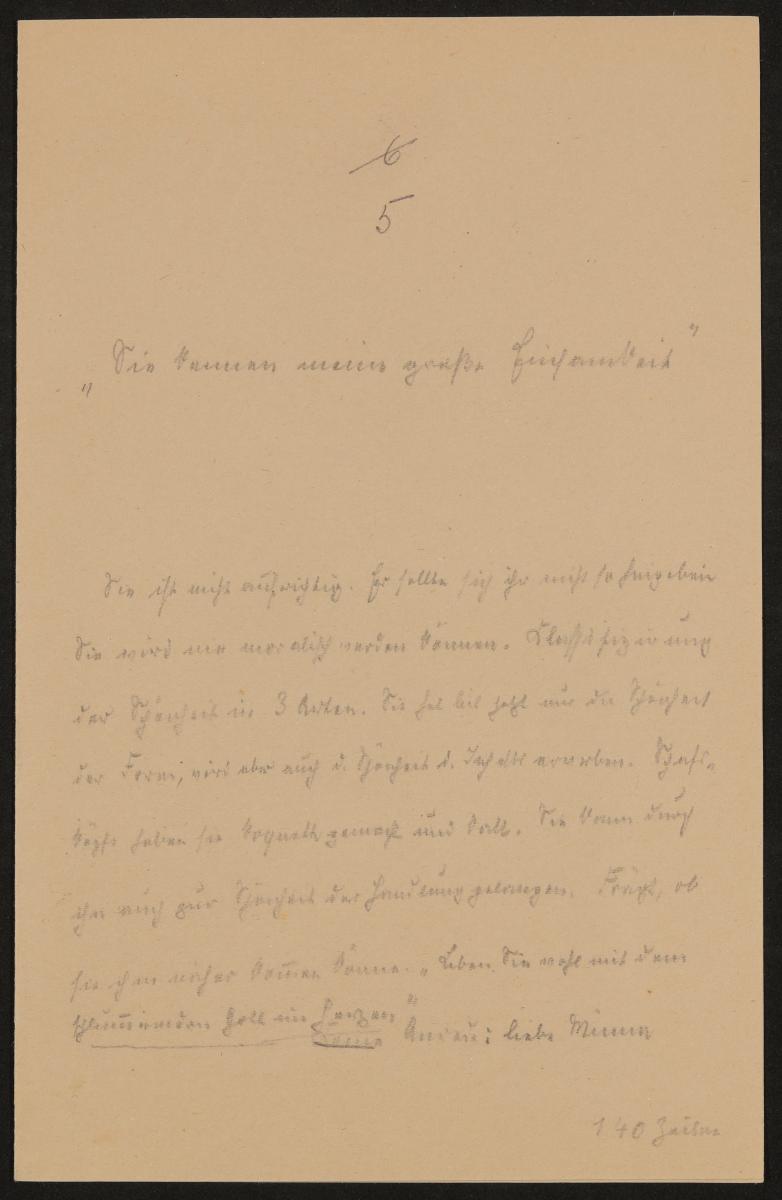 6
5
„Sie kennen meine große Einsamkeit"
Sie ist nicht aufrichtig. Er sollte sich ihr nicht so hingeben
Sie wird nie moralisch werden können. Classifizierung
der Schönheit in 3 Arten. Sie hat bis jetzt nur die Schönheit
der Form, wird aber auch d. Schönheit d. Inhalts erwerben. Schafs-
köpfe haben sie kokett gemacht und kalt. Sie kann durch
ihn auch zur Schönheit der Handlung gelangen. Frägt, ob
sie ihm näher kom̅en könne. „Leben Sie wohl mit dem
schlum̅ernden Gott im Herzen" Anrede: liebe Minna
140 Zeilen